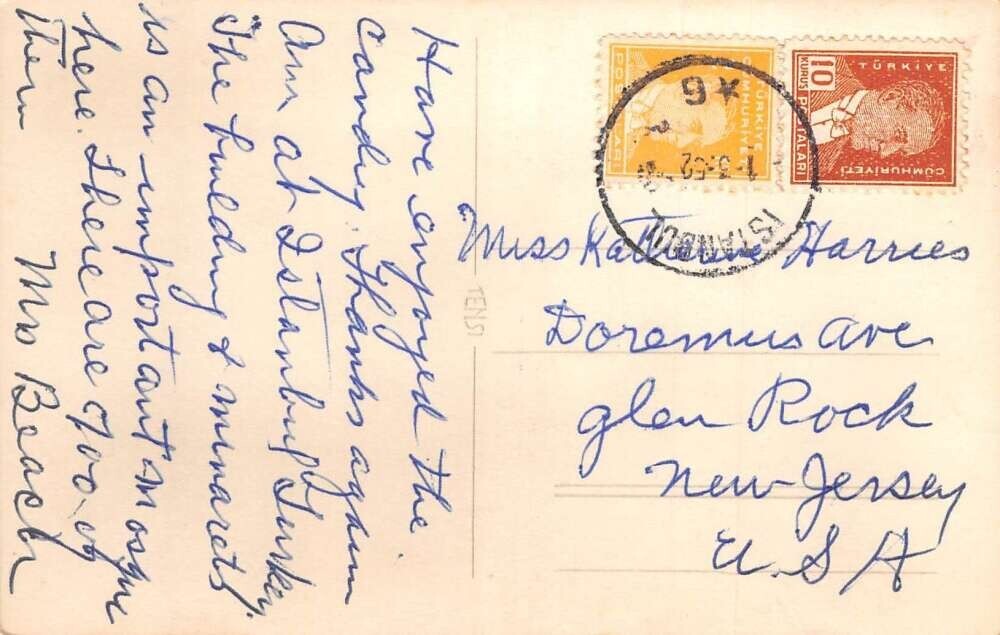 Have enjoyed the
candy. Thanks again
Am at Istanbul, Turkey.
The building & minarets
is an important mosque
here. There are 700 of
them Mrs Beach
TENSI
TÜRKİYE
CUMHURİYETİ
POSTALARI
10
KURUŞ
TÜRKİYE
POSTALARI
CUMHURİYETİ
ISTANBUL
1-3-52
*6
Miss Katharine Harries
Doremus Ave
Glen Rock
New-Jersey
U.S A